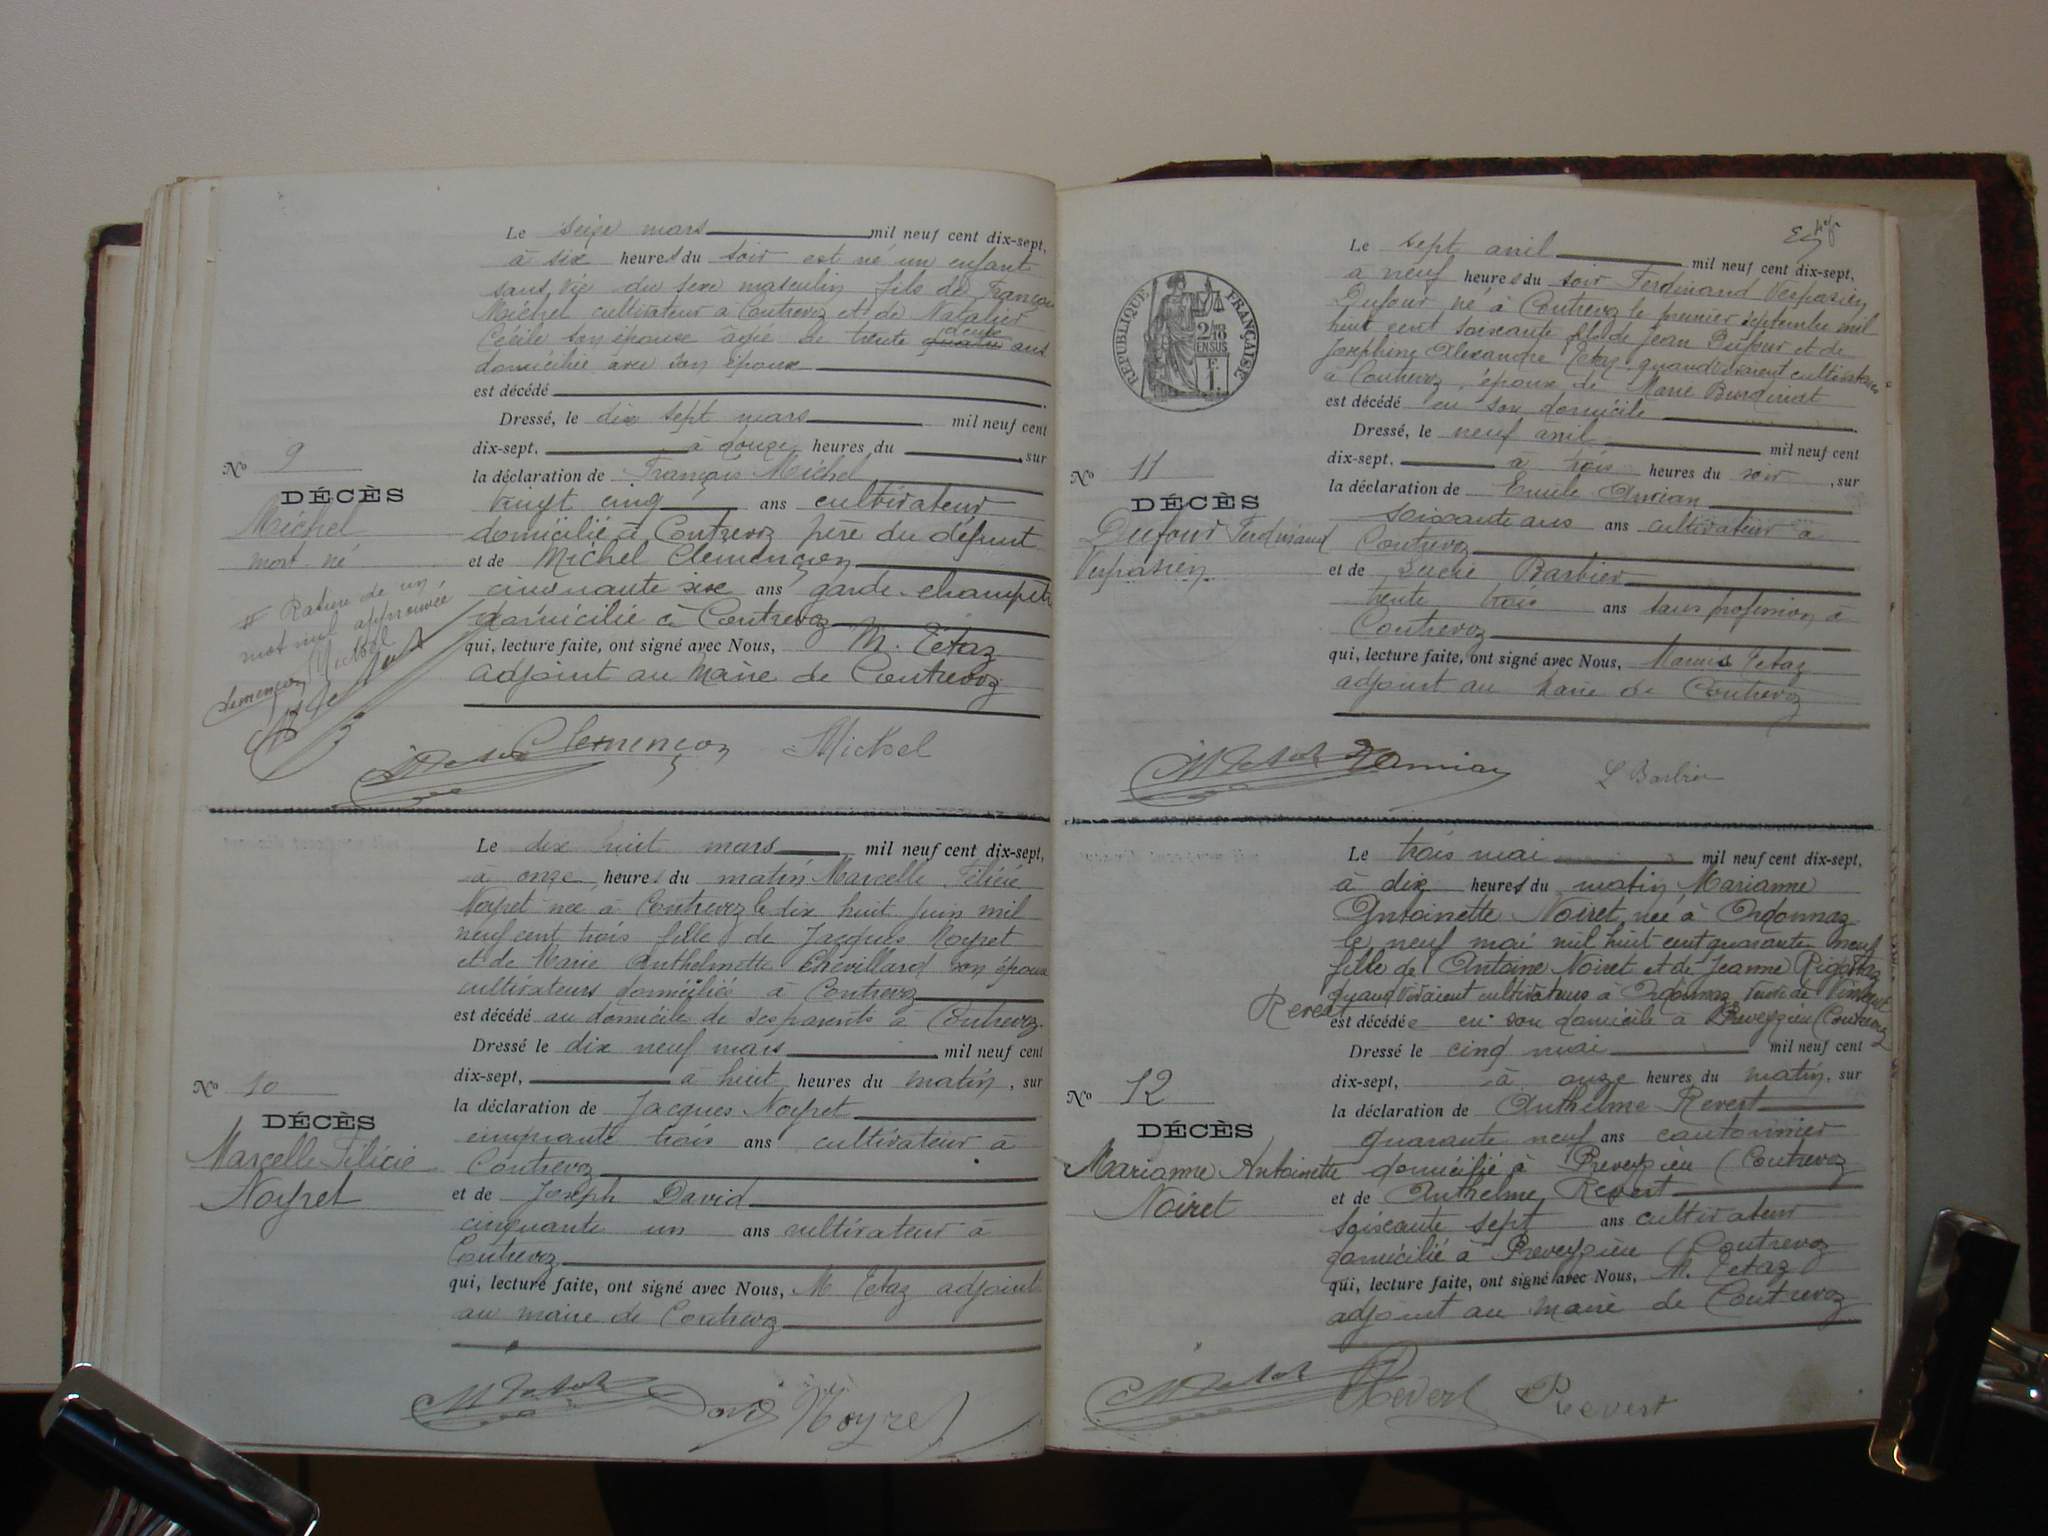 Le seize mars mil neuf cent dix-sept,
à six heures du soir est né un enfant
sans vie du sexe masculin fils de François
Michel cultivateur à Contrevoz et de
Cécile son épouse âgée de trente deux ans
domiciliée avec son époux
est décédé
Dressé, le dix sept mars mil neuf cent
dix-sept, à douze heures du , sur
la déclaration de François Michel
vingt cinq ans cultivateur
domicilié à Contrevoz père du défunt
et de Michel Clemençon
cinquante six ans garde-champêtre
domicilié à Contrevoz
qui, lecture faite, ont signé avec Nous, M. Tétaz
adjoint au Maire de Contrevoz
No 9
DÉCÈS
Michel
mort-né
# Rature de un
mot nul approuvée
Clemençon Michel
Clemençon Michel
Le dix huit mars mil neuf cent dix-sept,
à onze heures du matin Marcelle Félicie
Noyret née à Contrevoz le dix huit juin mil
neuf cent trois fille de Jacques Noyret
et de Marie Anthelmette Chevillard son épouse
cultivateurs domiciliés à Contrevoz
est décédé au domicile de ses parents à Contrevoz.
Dressé le dix neuf mars mil neuf cent
dix-sept, à huit heures du matin, sur
la déclaration de Jacques Noyret
cinquante trois ans cultivateur à
Contrevoz
et de Joseph David
cinquante un ans cultivateur à
Contrevoz
qui, lecture faite, ont signé avec Nous, M Tétaz adjoint
au maire de Contrevoz
No 10
DÉCÈS
Marcelle Félicie
Noyret
David Noyret
RÉPUBLIQUE FRANÇAISE
Le sept avril mil neuf cent dix-sept,
à neuf heures du soir Ferdinand Vespasien
Dufour né à Contrevoz le premier septembre mil
huit cent soixante fils de Jean Dufour et de
Joséphine Alexandre Tétaz quand vivaient cultivateurs
à Contrevoz, époux de Marie
est décédé en son domicile
Dressé, le neuf avril mil neuf cent
dix-sept, à trois heures du soir, sur
la déclaration de Emile
soixante ans ans cultivateur à
Contrevoz
et de Lucie Barbier
trente trois ans sans profession à
Contrevoz
qui, lecture faite, ont signé avec Nous, Marius Tétaz
adjoint au Maire de Contrevoz
No 11
DÉCÈS
Dufour Ferdinand
Vespasien
L Barbier
Le trois mai mil neuf cent dix-sept,
à dix heures du matin Marianne
Antoinette Noiret née à Ordonnaz
le neuf mai mil huit cent quarante neuf
fille de Antoine Noiret et de Jeanne
quand vivaient cultivateurs à Ordonnaz veuve de Vincent
Revert est décédée en son domicile à Preveyzieu (Contrevoz
Dressé le cinq mai mil neuf cent
dix-sept, à onze heures du matin, sur
la déclaration de Anthelme Revert
quarante neuf ans cantonnier
domicilié à Preveyzieu (Contrevoz
et de Anthelme Revert
soixante sept ans cultivateur
domicilié à Preveyzieu (Contrevoz
qui, lecture faite, ont signé avec Nous, M. Tétaz
adjoint au maire de Contrevoz
No 12
DÉCÈS
Marianne Antoinette
Noiret
Revert Revert